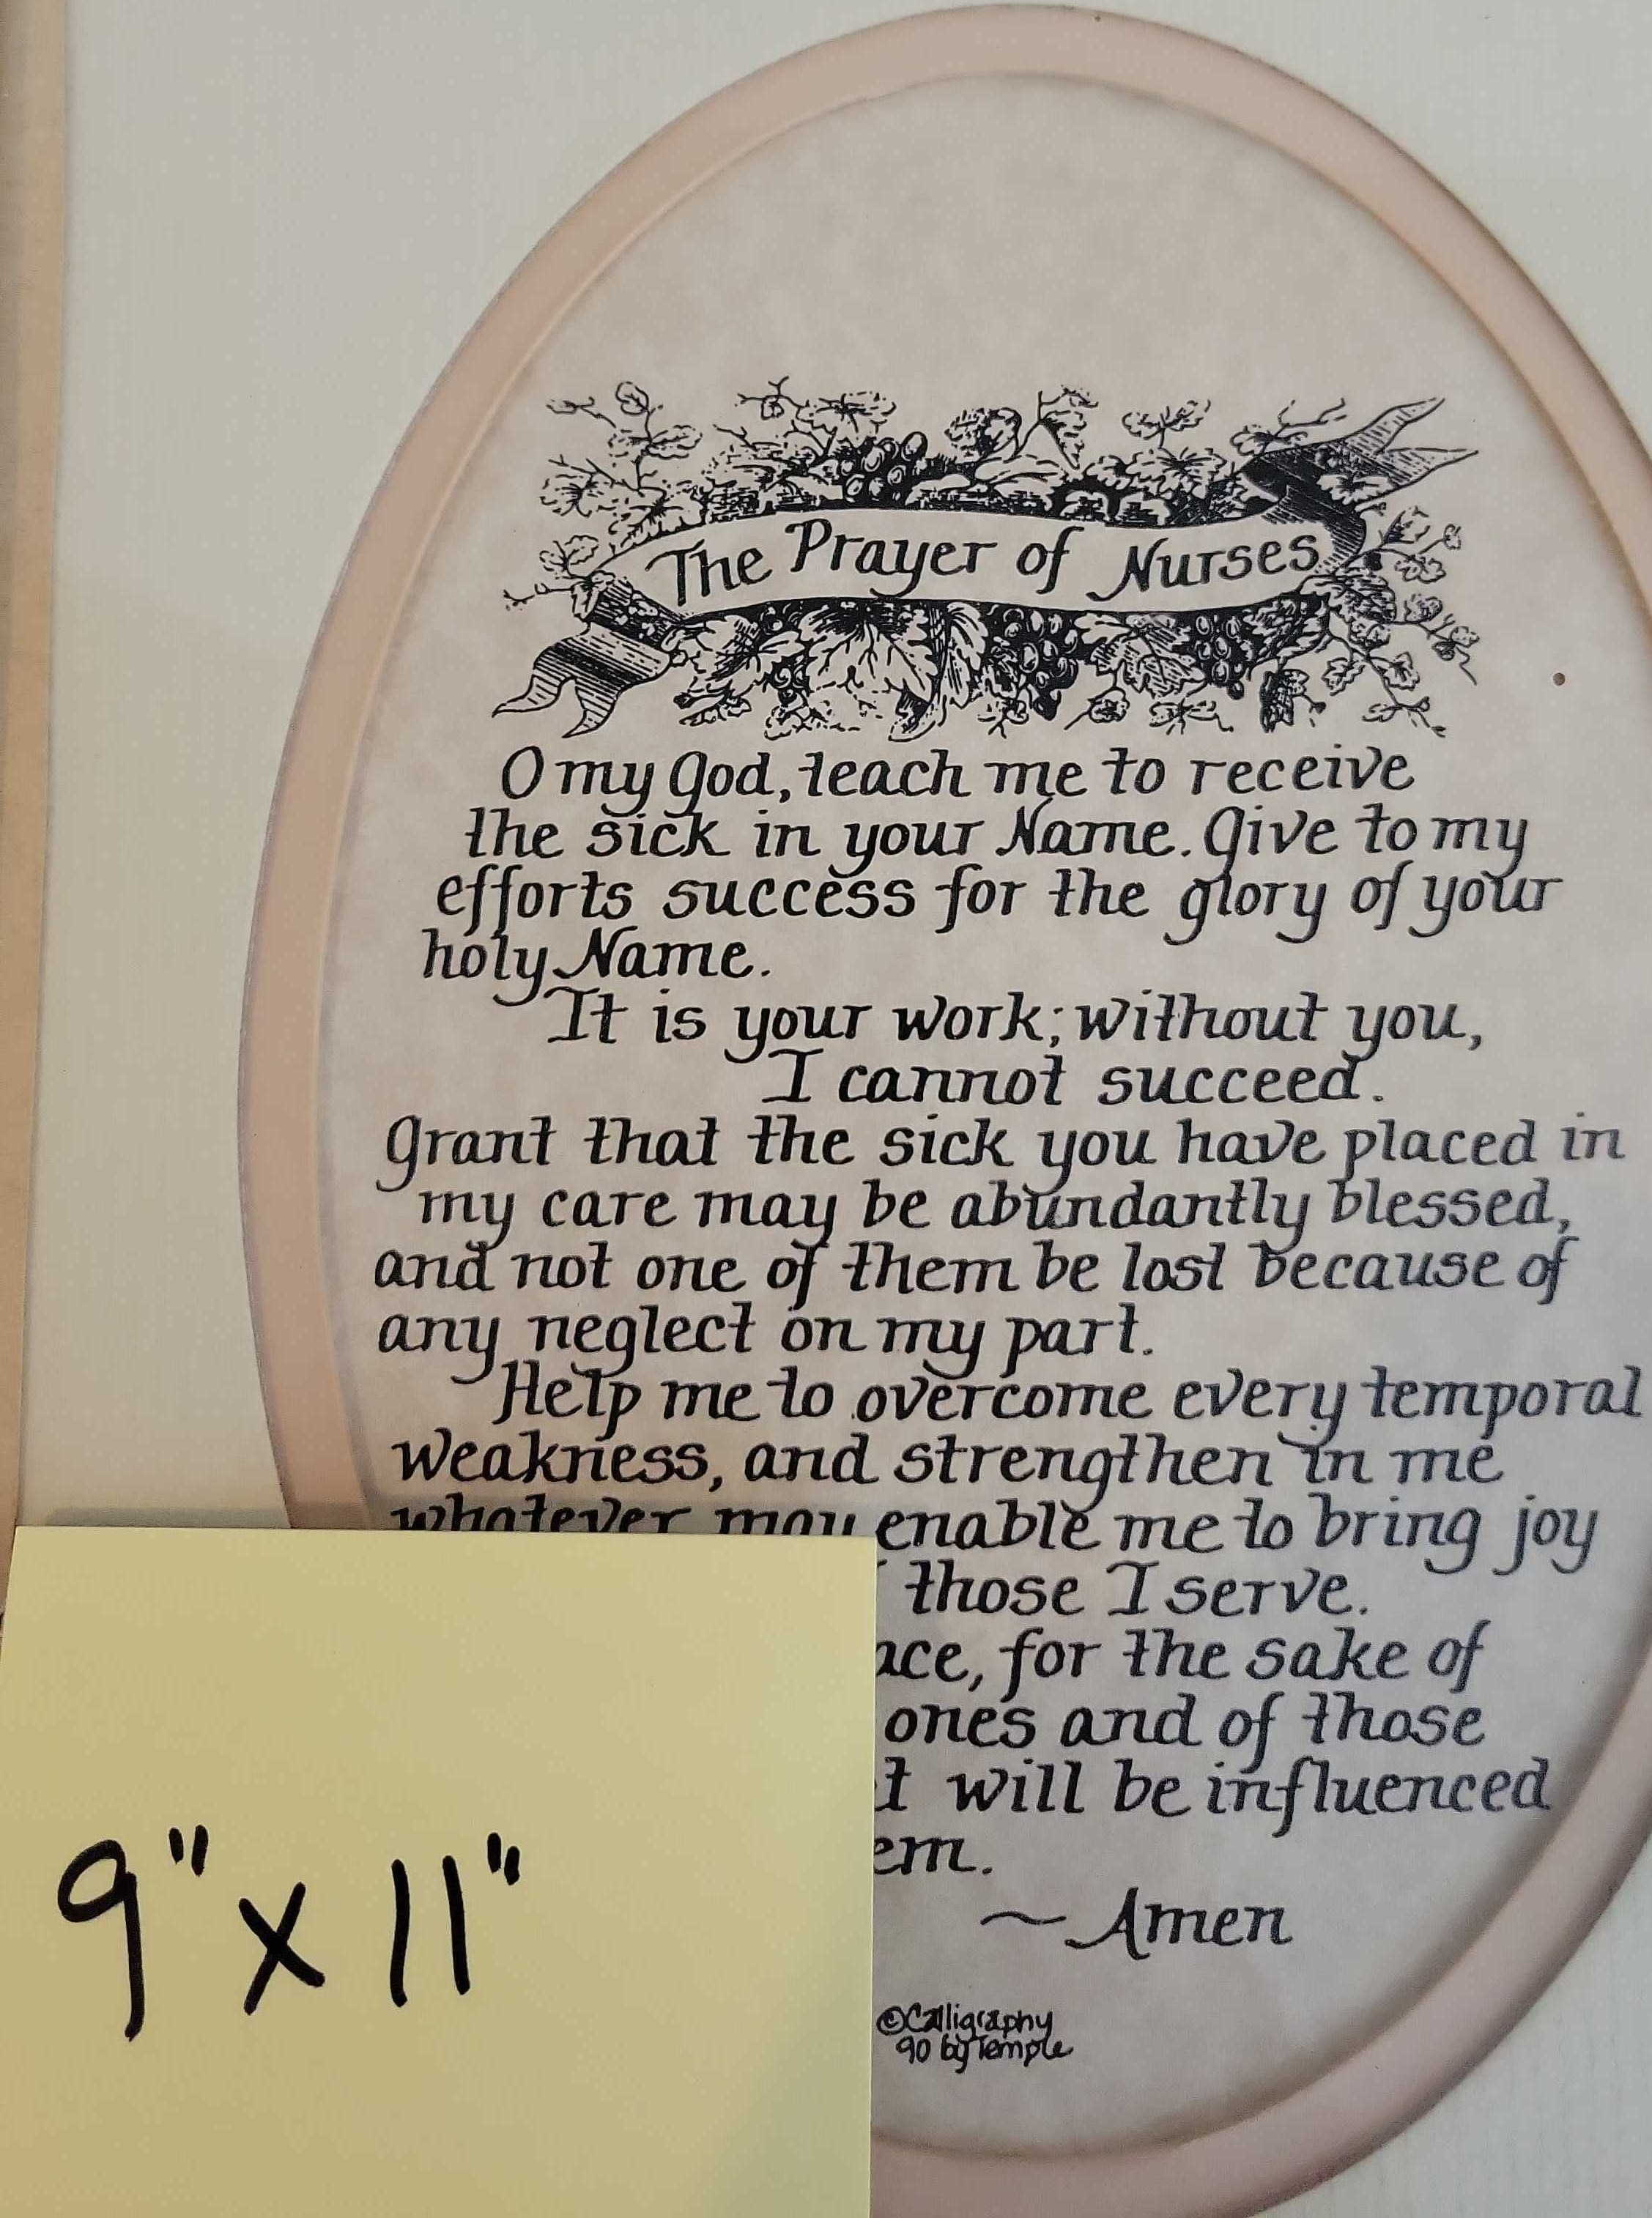 The Prayer of Nurses
O my God, teach me to receive
the sick in your Name. Give to my
efforts success for the glory of your
holy Name.
It is your work; without you,
I cannot succeed.
Grant that the sick you have placed in
my care may be abundantly blessed,
and not one of them be lost because of
any neglect on my part.
Help me to overcome every temporal
weakness, and strengthen in me
whatever may enable me to bring joy
those I serve.
for the sake of
ones and of those
will be influenced
~Amen
©Calligraphy
90 by Temple
9" x 11"